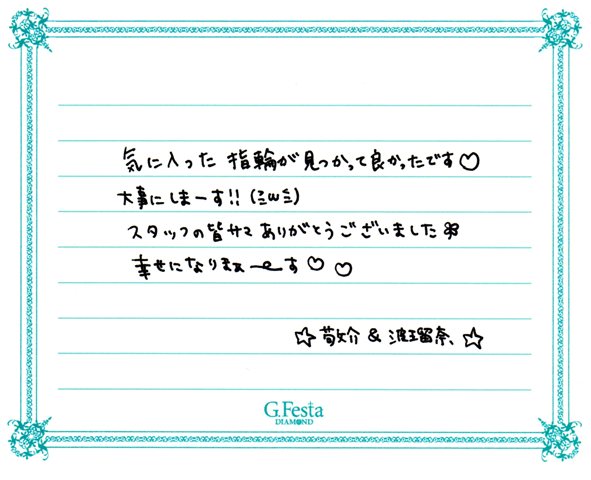 気に入った 指輪が見つかって良かったです♡
大事にしまーす!!(ミωミ)
スタッフの皆サマありがとうございました
幸せになりまぁーす♡♡
☆ 敬介 & 瑠奈 ☆
G.Festa
DIAMOND